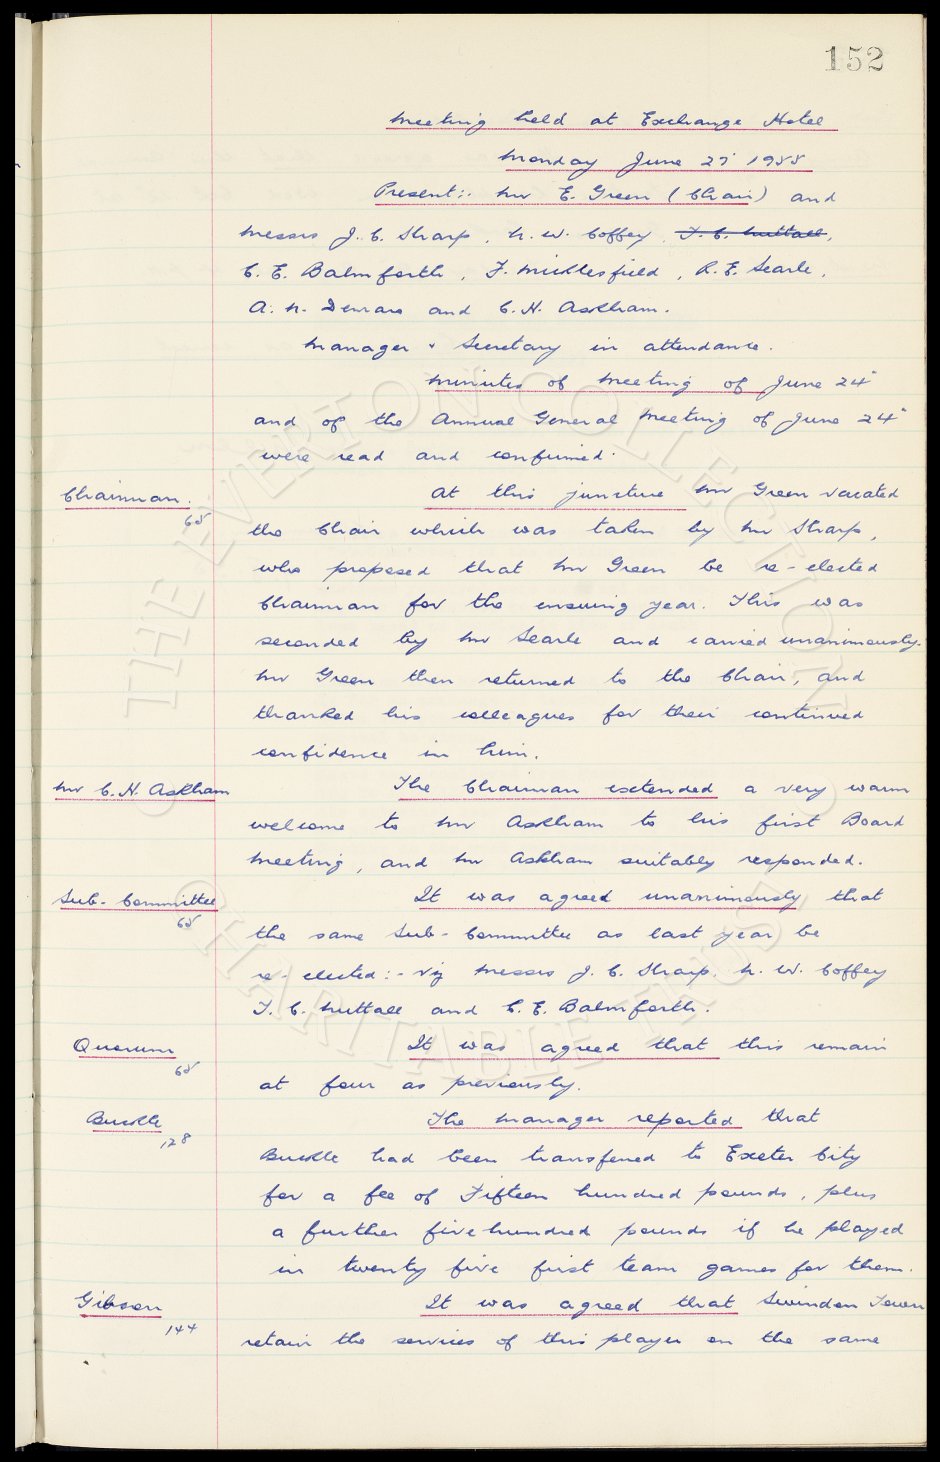 152
Meeting held at Exchange Hotel
Monday June 27" 1955
Present:- Mr E. Green (Chair) and
Messrs J. C. Sharp, N. W. Coffey, T. C. Nuttall,
C. E. Balmforth, F. Micklesfield, R. E. Searle,
A. N. Denaro and C. H. Askham.
Manager & Secretary in attendance.
Minutes of Meeting of June 24"
and of the Annual General Meeting of June 24"
were read and confirmed.
Chairman.
65
At this juncture Mr Green vacated
the Chair which was taken by Mr Sharp,
who proposed that Mr Green be re-elected
Chairman for the ensuing year. This was
seconded by Mr Searle and carried unanimously.
Mr Green then returned to the Chair, and
thanked his colleagues for their continued
confidence in him.
Mr C. H. Askham
The Chairman extended a very warm
welcome to Mr Askham to his first Board
Meeting, and Mr Askham suitably responded.
Sub-Committee
65
It was agreed unanimously that
the same Sub-Committee as last year be
re-elected:- viz Messrs J. C. Sharp, N. W. Coffey
T. C. Nuttall and C. E. Balmforth.
Quorum
65
It was agreed that this remain
at four as previously.
Buckle
128
The Manager reported that
Buckle had been transferred to Exeter City
for a fee of Fifteen hundred pounds, plus
a further five hundred pounds if he played
in twenty five first team games for them.
Gibson
144
It was agreed that Swindon Town
retain the services of this player on the same
THE EVERTON COLLECTION
CHARITABLE TRUST